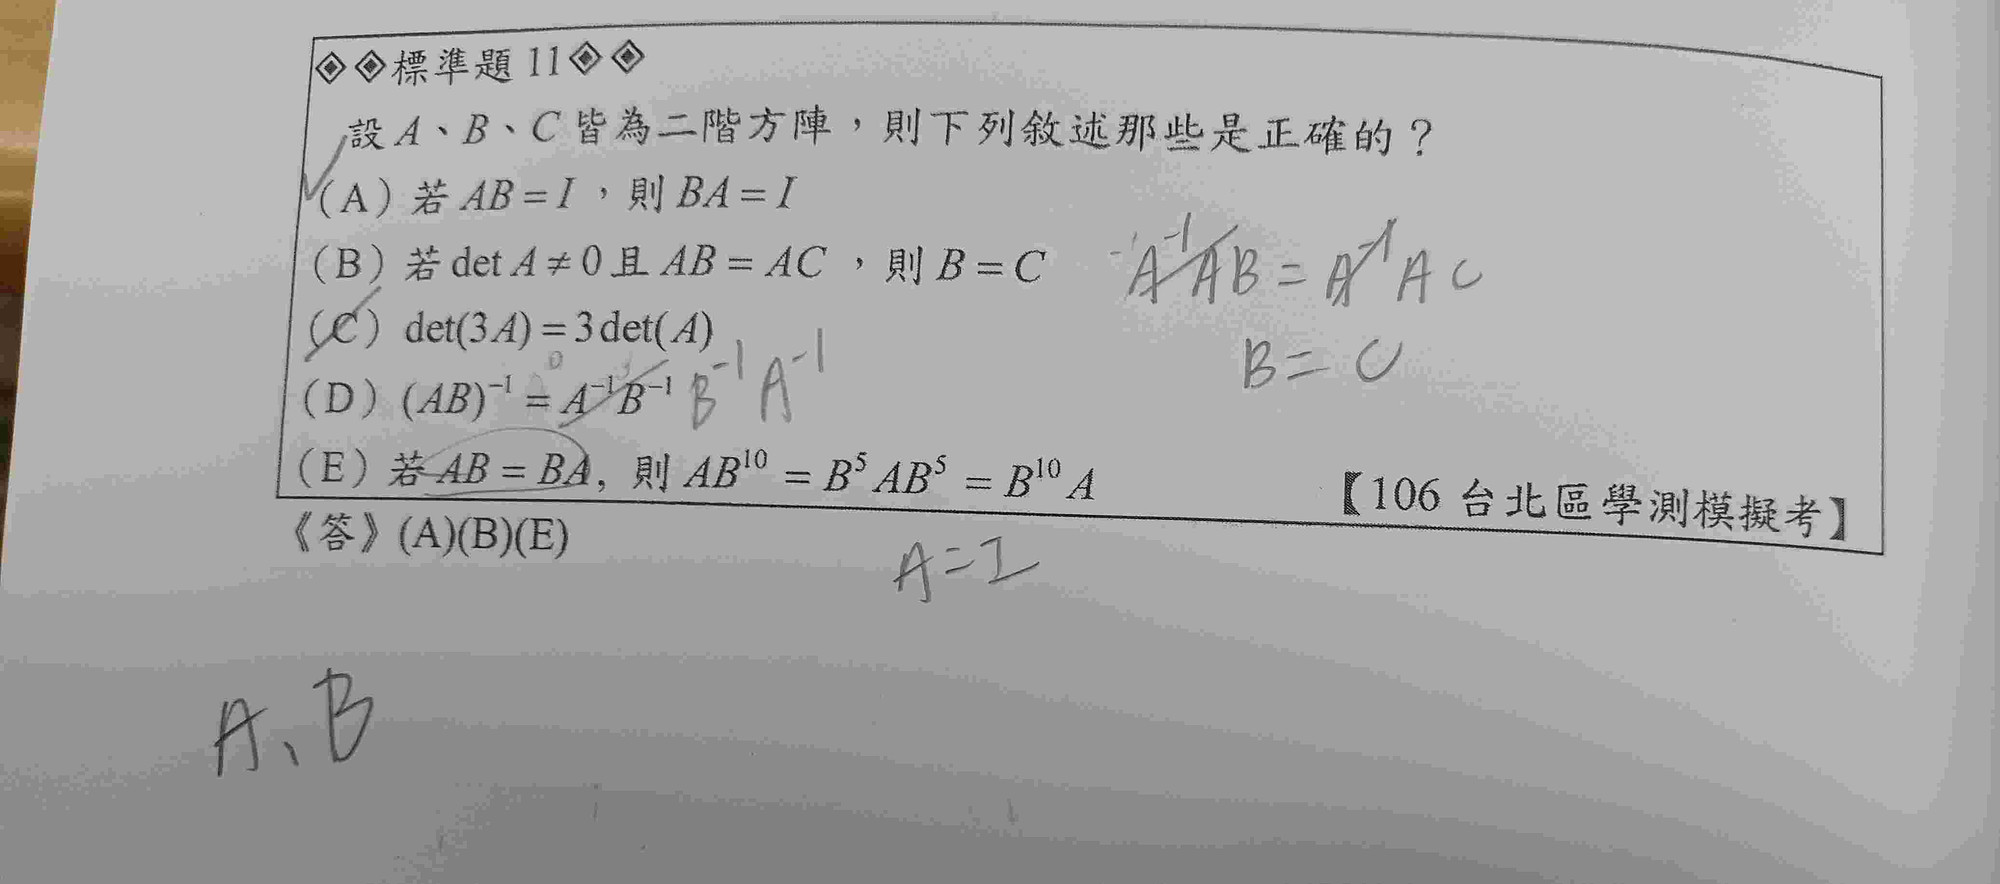 ◈◈標準題 11◈◈
設 A、B、C 皆為二階方陣，則下列敘述那些是正確的？
(A) 若 AB = I ，則 BA = I
(B) 若 det A ≠ 0 且 AB = AC ，則 B = C
A⁻¹AB = A⁻¹AC
(C) det(3A) = 3det(A)
B = C
(D) (AB)⁻¹ = A⁻¹B⁻¹ B⁻¹A⁻¹
(E) 若 AB = BA, 則 AB¹⁰ = B⁵AB⁵ = B¹⁰A
【106 台北區學測模擬考】
《答》(A)(B)(E)
A=I
A、B